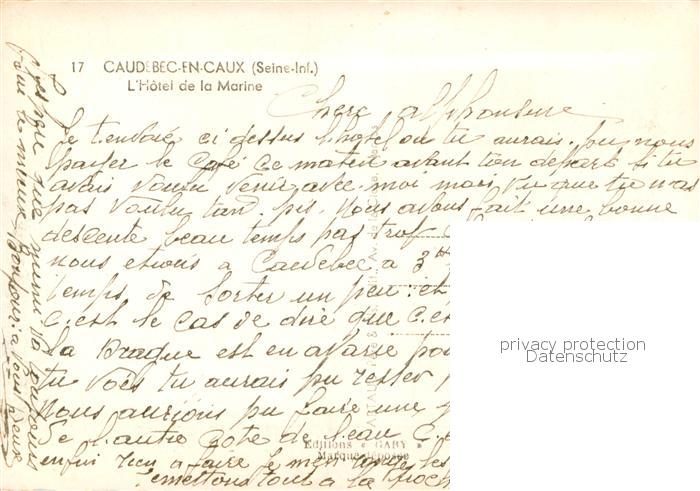 17 CAUDEBEC-EN-CAUX (Seine-Inf.)
L'Hôtel de la Marine
Chere alphonsine
Je tenvoie ci dessus l'hotel ou tu aurais pu nous
payer le café ce matin avant ton depart si tu
avais voulu venir avec moi mais vu que tu n'as
pas voulu tant pis. nous avons fait une bonne
descente beau temps pas trop
nous etions a Caudebec a 3
temps de sorter un peu et
c'est le cas de dire que c'es
la est en avance
tu vois tu aurais pu rester
Nous aurions pu faire une
de l'autre cote de l'eau
enfin rien a faire
remettons tout a la proch
J'espère que mimi va toujours
pour le mieux Bonjour a vous deux
Editions « GABY »
Marque déposée
privacy protection
Datenschutz